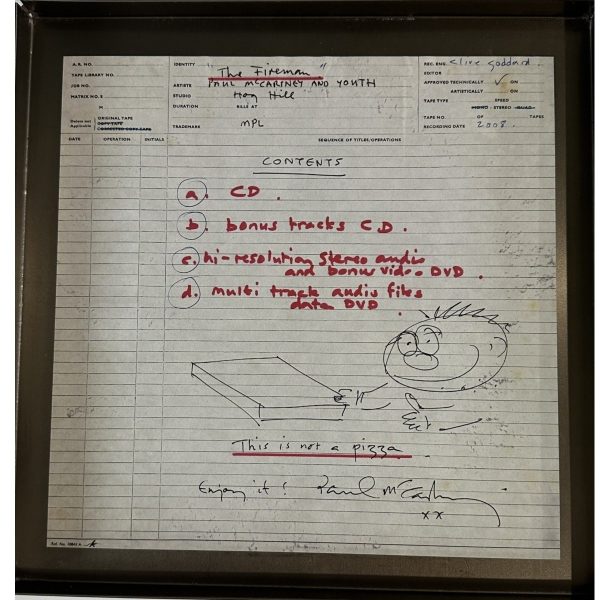 A.R. NO.
TAPE LIBRARY NO.
JOB NO.
MATRIX NO. S
M
Delete not Applicable
ORIGINAL TAPE
COPY TAPE
CORRECTED COPY TAPE
IDENTITY "The Fireman"
ARTISTS PAUL McCARTNEY AND YOUTH
STUDIO Hog Hill
DURATION
TRADEMARK MPL
REC. ENG. Clive Goddard
EDITOR
APPROVED TECHNICALLY ✓ ON
ARTISTICALLY ON
TAPE TYPE SPEED
MONO - STEREO - QUAD
TAPE NO. OF TAPES
RECORDING DATE 2008.
DATE OPERATION INITIALS SEQUENCE OF TITLES/OPERATIONS
CONTENTS
a. CD.
b. bonus tracks CD.
c. hi-resolution stereo audio
and bonus video DVD.
d. multi track audio files
data DVD.
This is not a pizza
Enjoy it! Paul McCartney
xx